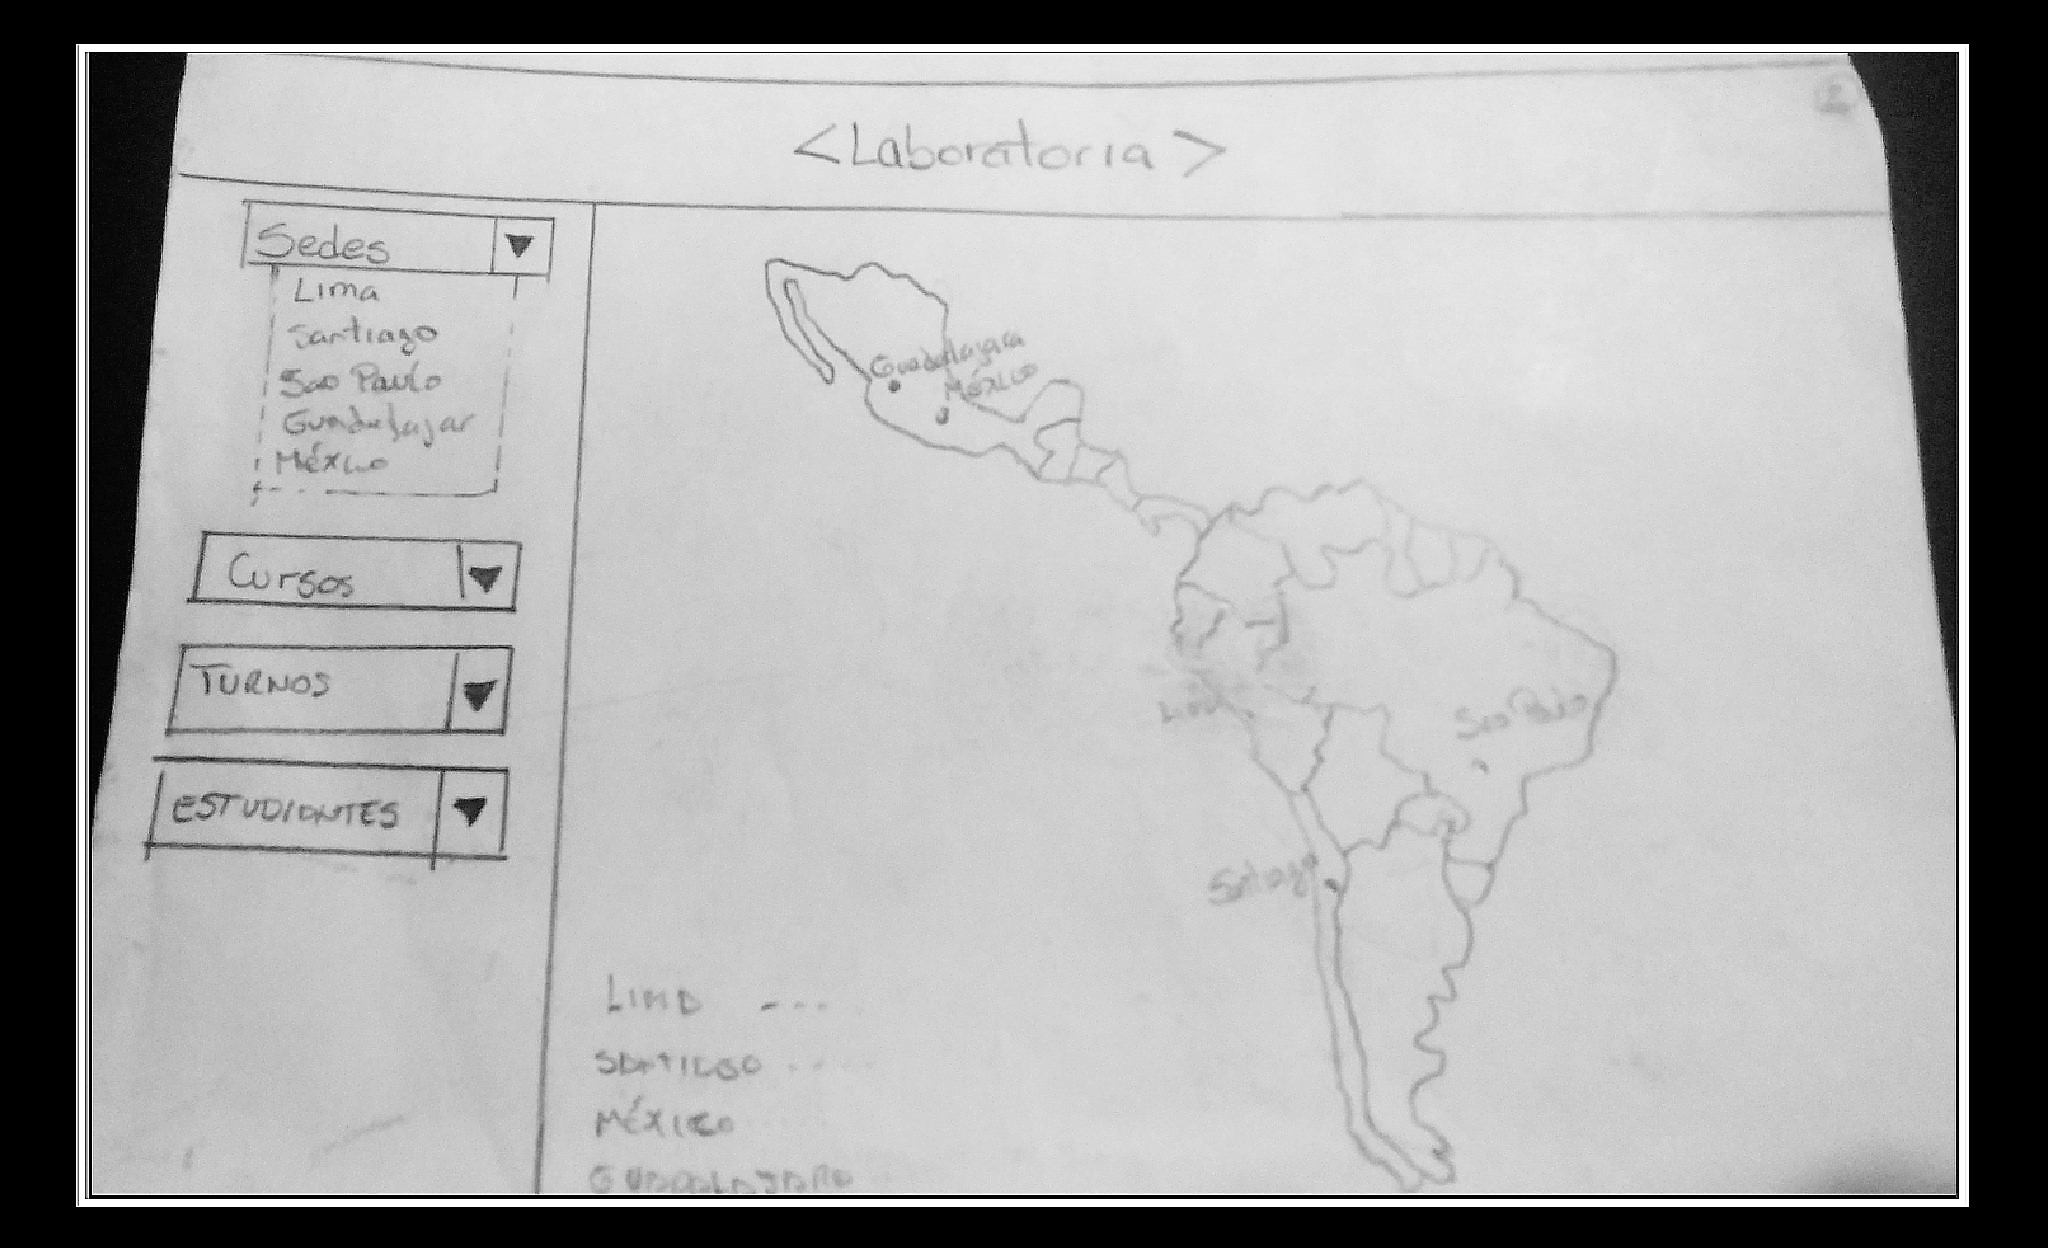 2
<Laboratoria>
Sedes
Lima
Santiago
Sao Paulo
Guadalajar
México
Cursos
TURNOS
ESTUDIANTES
Guadalajara
México
Lima
Sao Paulo
LIMA ---
SANTIAGO ----
MÉXICO
GUADALAJARA